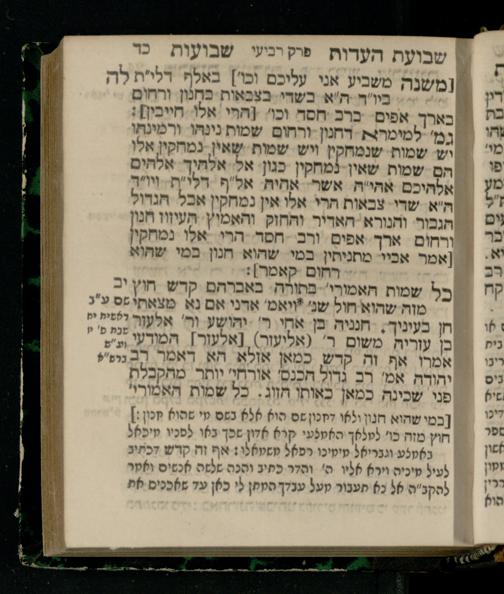 שבועת העדות פרק רביעי שבועות כד
[משנה משביע אני עליכם וכו'] באלף דלי"ת לה
ביו"ד ה"א בשדי בצבאות בחנון ורחום
בארך אפים ברב חסד וכו' [הרי אלו חייבין]:
גמ' למימרא דחנון ורחום שמות נינהו ורמינהו
יש שמות שנמחקין ויש שמות שאין נמחקין אלו
הם שמות שאין נמחקין כגון אל אלהיך אלהים
אלהיכם אהי"ה אשר אהיה אל"ף דלי"ת ויו"ד
ה"א שדי צבאות הרי אלו אין נמחקין אבל הגדול
הגבור והנורא האדיר והחזק והאמיץ העיזוז חנון
ורחום ארך אפים ורב חסד הרי אלו נמחקין
[אמר אביי מתניתין במי שהוא חנון במי שהוא
רחום קאמר]:
כל שמות האמורי' בתורה באברהם קדש חוץ יב
מזה שהוא חול שנ' *ויאמ' אדני אם נא מצאתי שם ע"ב
חן בעיניך. חנניה בן אחי ר' יהושע ור' אלעזר בראשית יח
בן עזריה משום ר' (אליעזר) [אלעזר] המודעי
אמרו אף זה קדש כמאן אזלא הא דאמר רב
יהודה אמ' רב גדול הכנס' אורחי' יותר מהקבלת
פני שכינה כמאן כאותו הזוג. כל שמות האמורי'
[במי שהוא חנון ולאו דחנון שם הוא אלא בשם מי שהוא חנון:]
חוץ מזה כו' למלאך האמלעי קרא אדון שכך באו לפניו מיכאל
באמלע וגבריאל מימינו רפאל משמאלו: אף זה קדש דכתיב
לעיל מיניה וירא אליו ה' והדר כתיב והנה שלשה אנשים ואמר
להקב"ה אל נא תעבור מעל עבדך המתן לי כאן עד שאכניס את